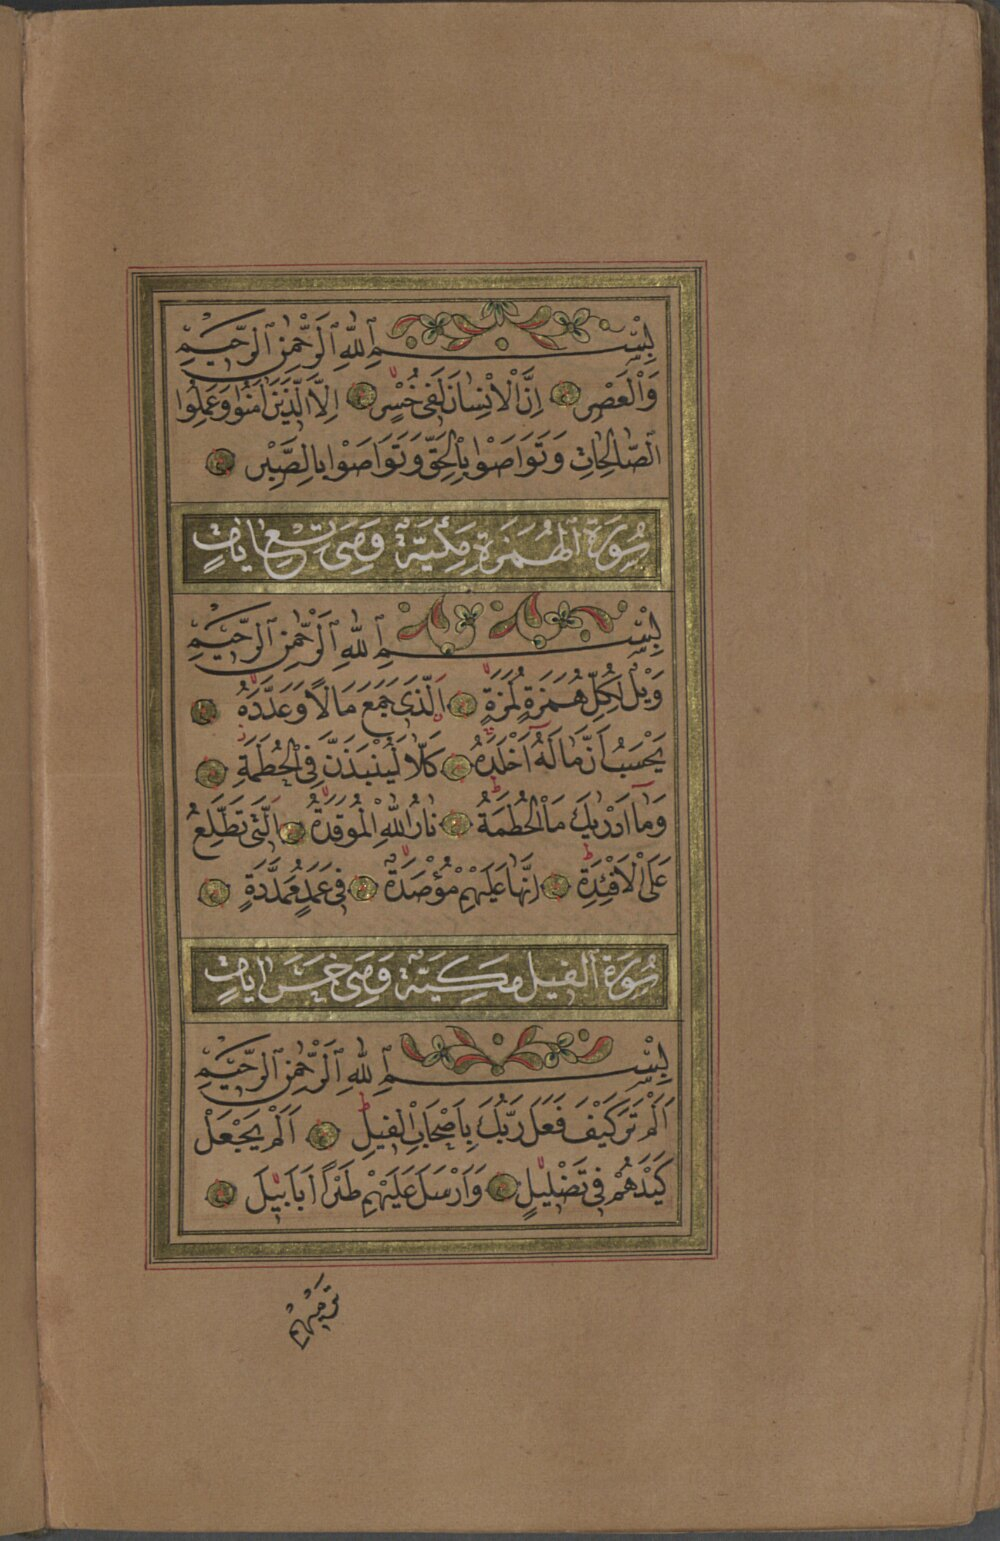 بِسْمِ اللّٰهِ الرَّحْمٰنِ الرَّحٖيمِ
وَالْعَصْرِ اِنَّ الْاِنْسَانَ لَفٖى خُسْرٍ اِلَّا الَّذٖينَ اٰمَنُوا وَعَمِلُوا
الصَّالِحَاتِ وَتَوَاصَوْا بِالْحَقِّ وَتَوَاصَوْا بِالصَّبْرِ
سُورَةُ الْهُمَزَةِ مَكِّيَّةٌ وَهِىَ تِسْعُ اٰيَاتٍ
بِسْمِ اللّٰهِ الرَّحْمٰنِ الرَّحٖيمِ
وَيْلٌ لِكُلِّ هُمَزَةٍ لُمَزَةٍ اَلَّذٖى جَمَعَ مَالًا وَعَدَّدَهُ
يَحْسَبُ اَنَّ مَالَهُ اَخْلَدَهُ كَلَّا لَيُنْبَذَنَّ فِى الْحُطَمَةِ
وَمَا اَدْرٰيكَ مَا الْحُطَمَةُ نَارُ اللّٰهِ الْمُوقَدَةُ اَلَّتٖى تَطَّلِعُ
عَلَى الْاَفْئِدَةِ اِنَّهَا عَلَيْهِمْ مُؤْصَدَةٌ فٖى عَمَدٍ مُمَدَّدَةٍ
سُورَةُ الْفٖيلِ مَكِّيَّةٌ وَهِىَ خَمْسُ اٰيَاتٍ
بِسْمِ اللّٰهِ الرَّحْمٰنِ الرَّحٖيمِ
اَلَمْ تَرَ كَيْفَ فَعَلَ رَبُّكَ بِاَصْحَابِ الْفٖيلِ اَلَمْ يَجْعَلْ
كَيْدَهُمْ فٖى تَضْلٖيلٍ وَاَرْسَلَ عَلَيْهِمْ طَيْرًا اَبَابٖيلَ
تَرْمٖيهِمْ